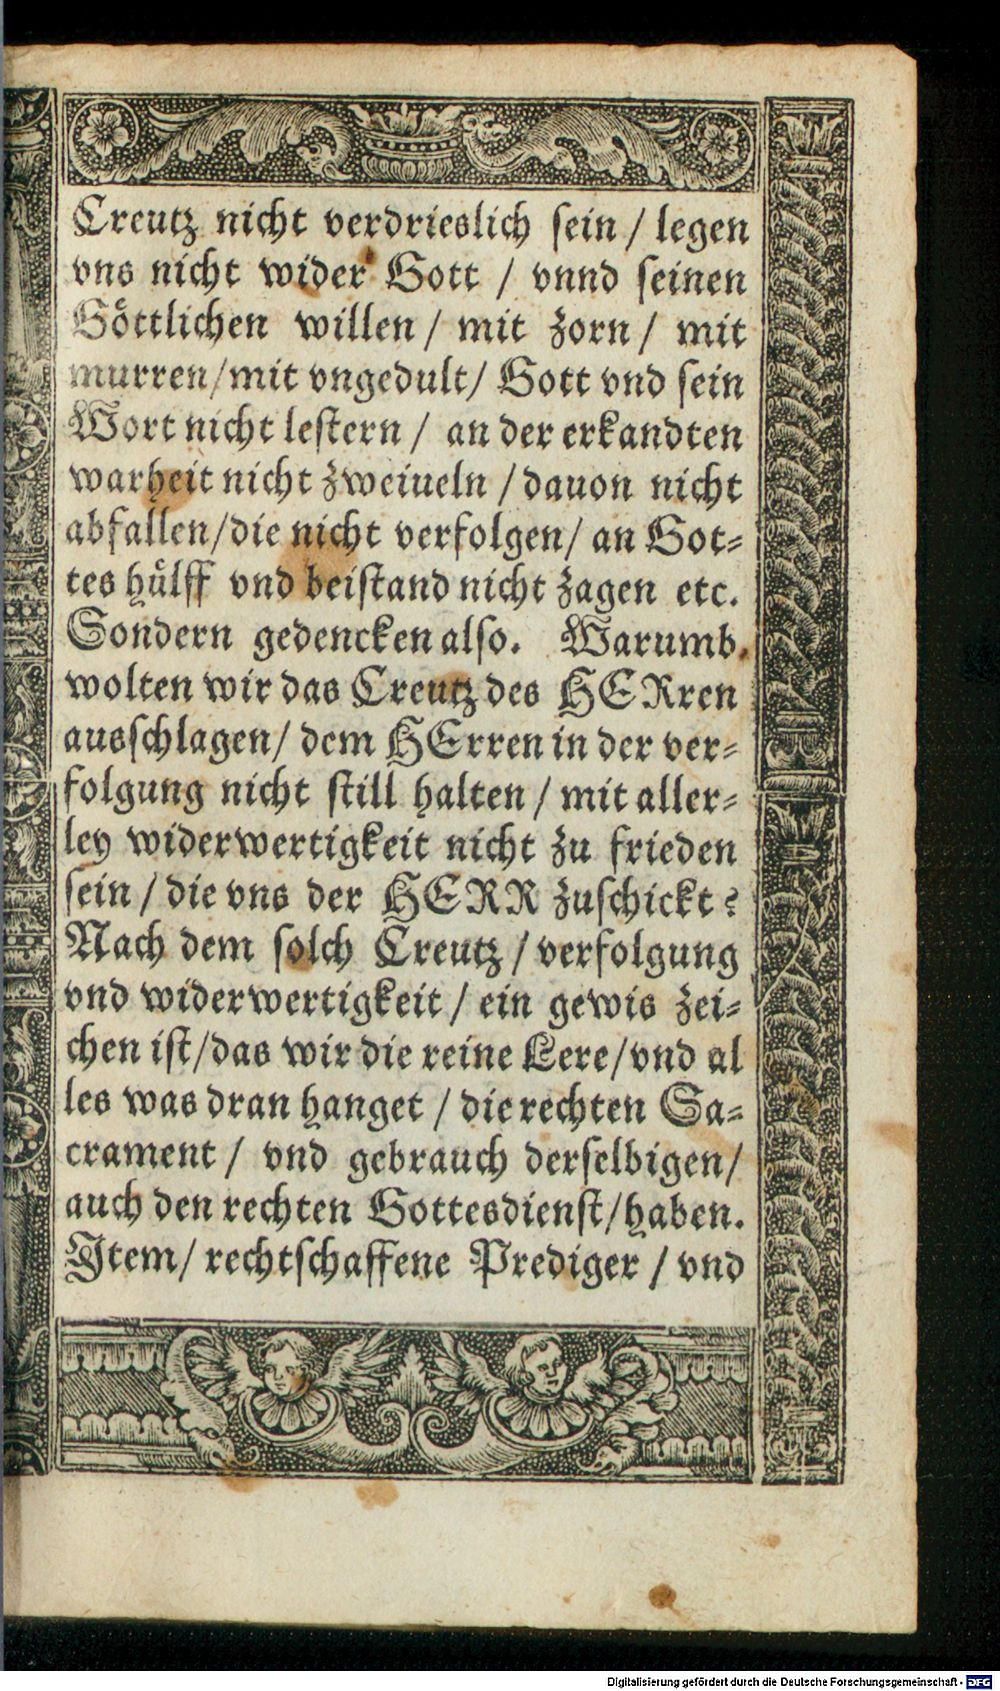 Creutz nicht verdrieslich sein / legen
vns nicht wider Gott / vnnd seinen
Göttlichen willen / mit zorn / mit
murren/mit vngedult/ Gott vnd sein
Wort nicht lestern / an der erkandten
warheit nicht zweiueln / dauon nicht
abfallen/die nicht verfolgen/ an Got-
tes hülff vnd beistand nicht zagen etc.
Sondern gedencken also. Warumb
wolten wir das Creutz des HERren
ausschlagen/ dem HErren in der ver-
folgung nicht still halten / mit aller-
ley widerwertigkeit nicht zu frieden
sein / die vns der HERR zuschickt?
Nach dem solch Creutz / verfolgung
vnd widerwertigkeit / ein gewis zei-
chen ist/das wir die reine Lere/vnd al
les was dran hanget / die rechten Sa-
crament / vnd gebrauch derselbigen/
auch den rechten Gottesdienst/haben.
Item/ rechtschaffene Prediger / vnd
Digitalisierung gefördert durch die Deutsche Forschungsgemeinschaft - DFG